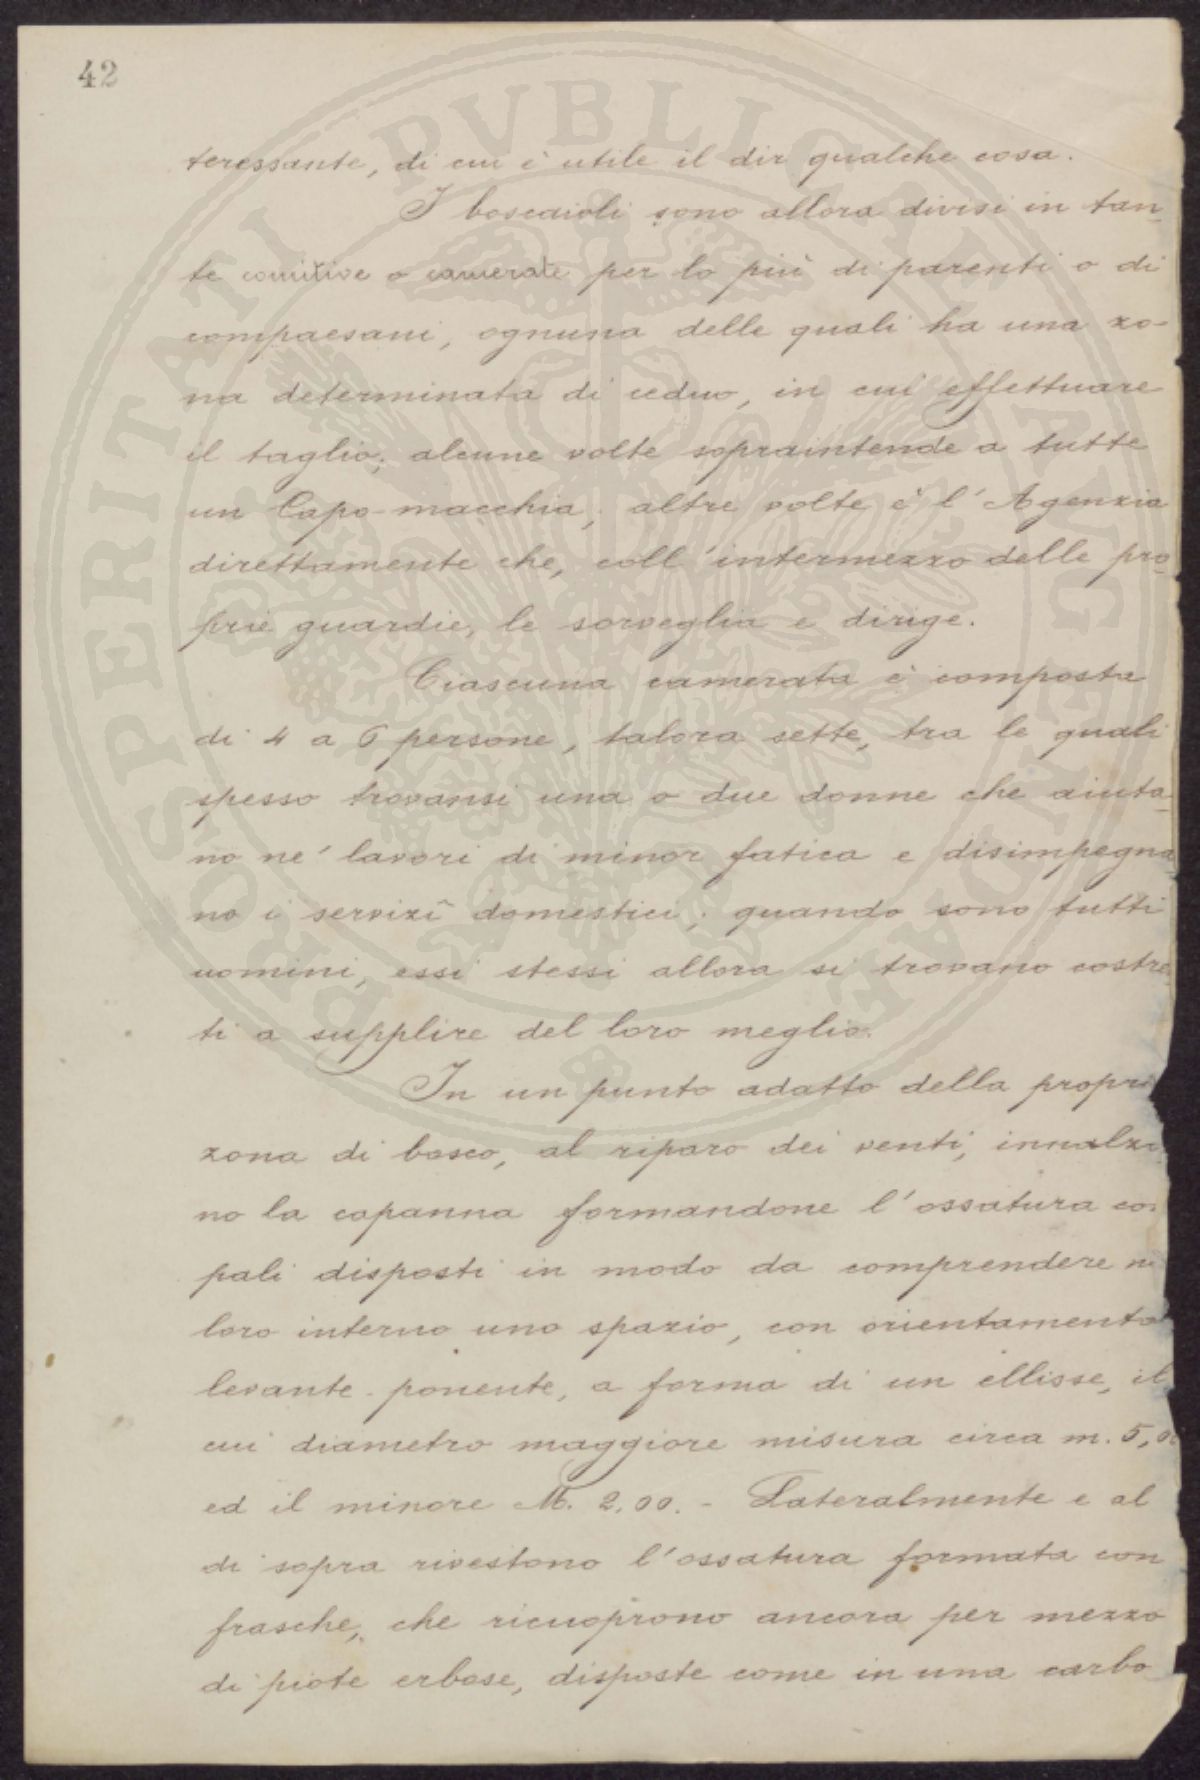 42
teressante, di cui è utile il dir qualche cosa.
I boscaioli sono allora divisi in tan-
te comitive o camerate per lo più di parenti o di
compaesani, ognuna delle quali ha una zo-
na determinata di ceduo, in cui effettuare
il taglio; alcune volte sopraintende a tutte
un Capo-macchia; altre volte è l'Agenzia
direttamente che, coll'intermezzo delle pro-
prie guardie, le sorveglia e dirige.
Ciascuna camerata è composta
di 4 a 6 persone, talora sette, tra le quali
spesso trovansi una o due donne che aiuta-
no ne' lavori di minor fatica e disimpegna
no i servizî domestici; quando sono tutti
uomini, essi stessi allora si trovano costre
ti a supplire del loro meglio.
In un punto adatto della propri
zona di bosco, al riparo dei venti, innalza
no la capanna formandone l'ossatura co
pali disposti in modo da comprendere n
loro interno uno spazio, con orientamento
levante-ponente, a forma di un ellisse, il
cui diametro maggiore misura circa m. 5,0
ed il minore M. 2,00. - Lateralmente e al
di sopra rivestono l'ossatura formata con
frasche, che ricuoprono ancora per mezzo
di piote erbose, disposte come in una carbo
PROSPERITATI PVBLICAE AVGENDAE